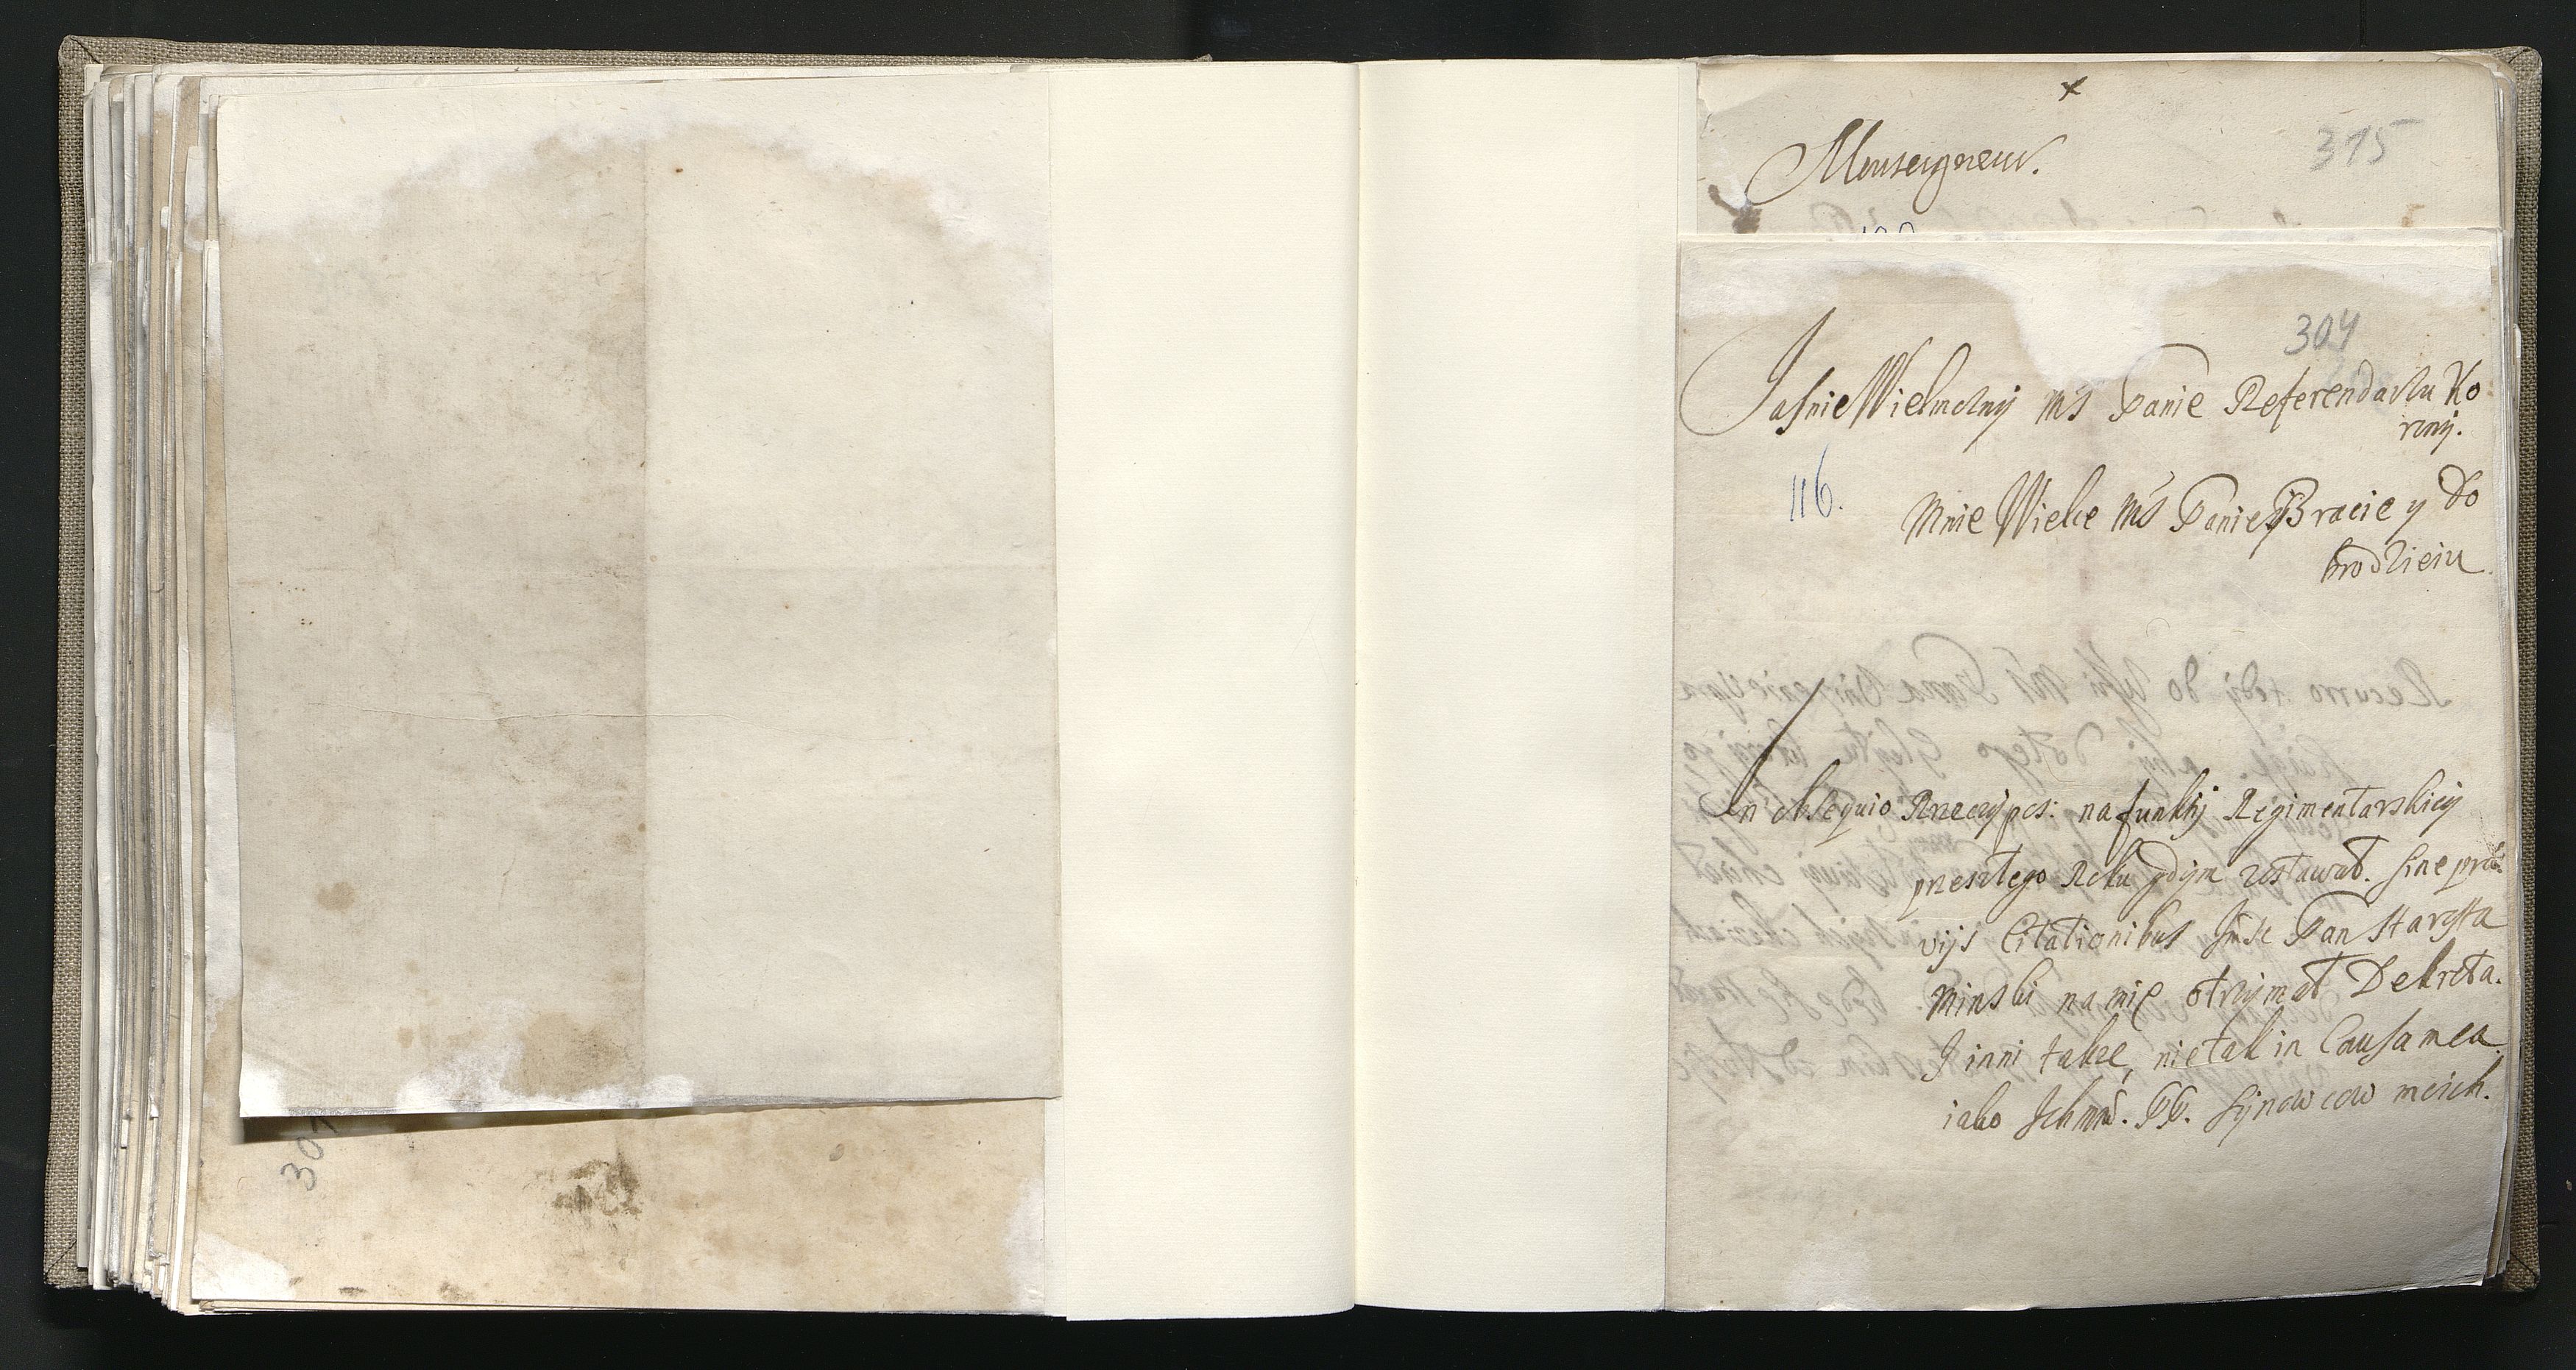 x
315
Monseigneur.
304
JasnieWielmozny Mś Panie Referendarzu Ko
rony.
116.
Mnie Wielce Mś Panie y Bracie y Do
brodzieiu
In obsequio Rzeczypos: na funkhj Regimentarskiey
przeszłego Roku gdym zostawał. sine præ
vijs Citationibus Jmsc Pan Starosta
Minski na mię otrzymał Dekreta.
I inni także, nietak in Causa mea
iako Ichmw. PP. Synowcow moich.